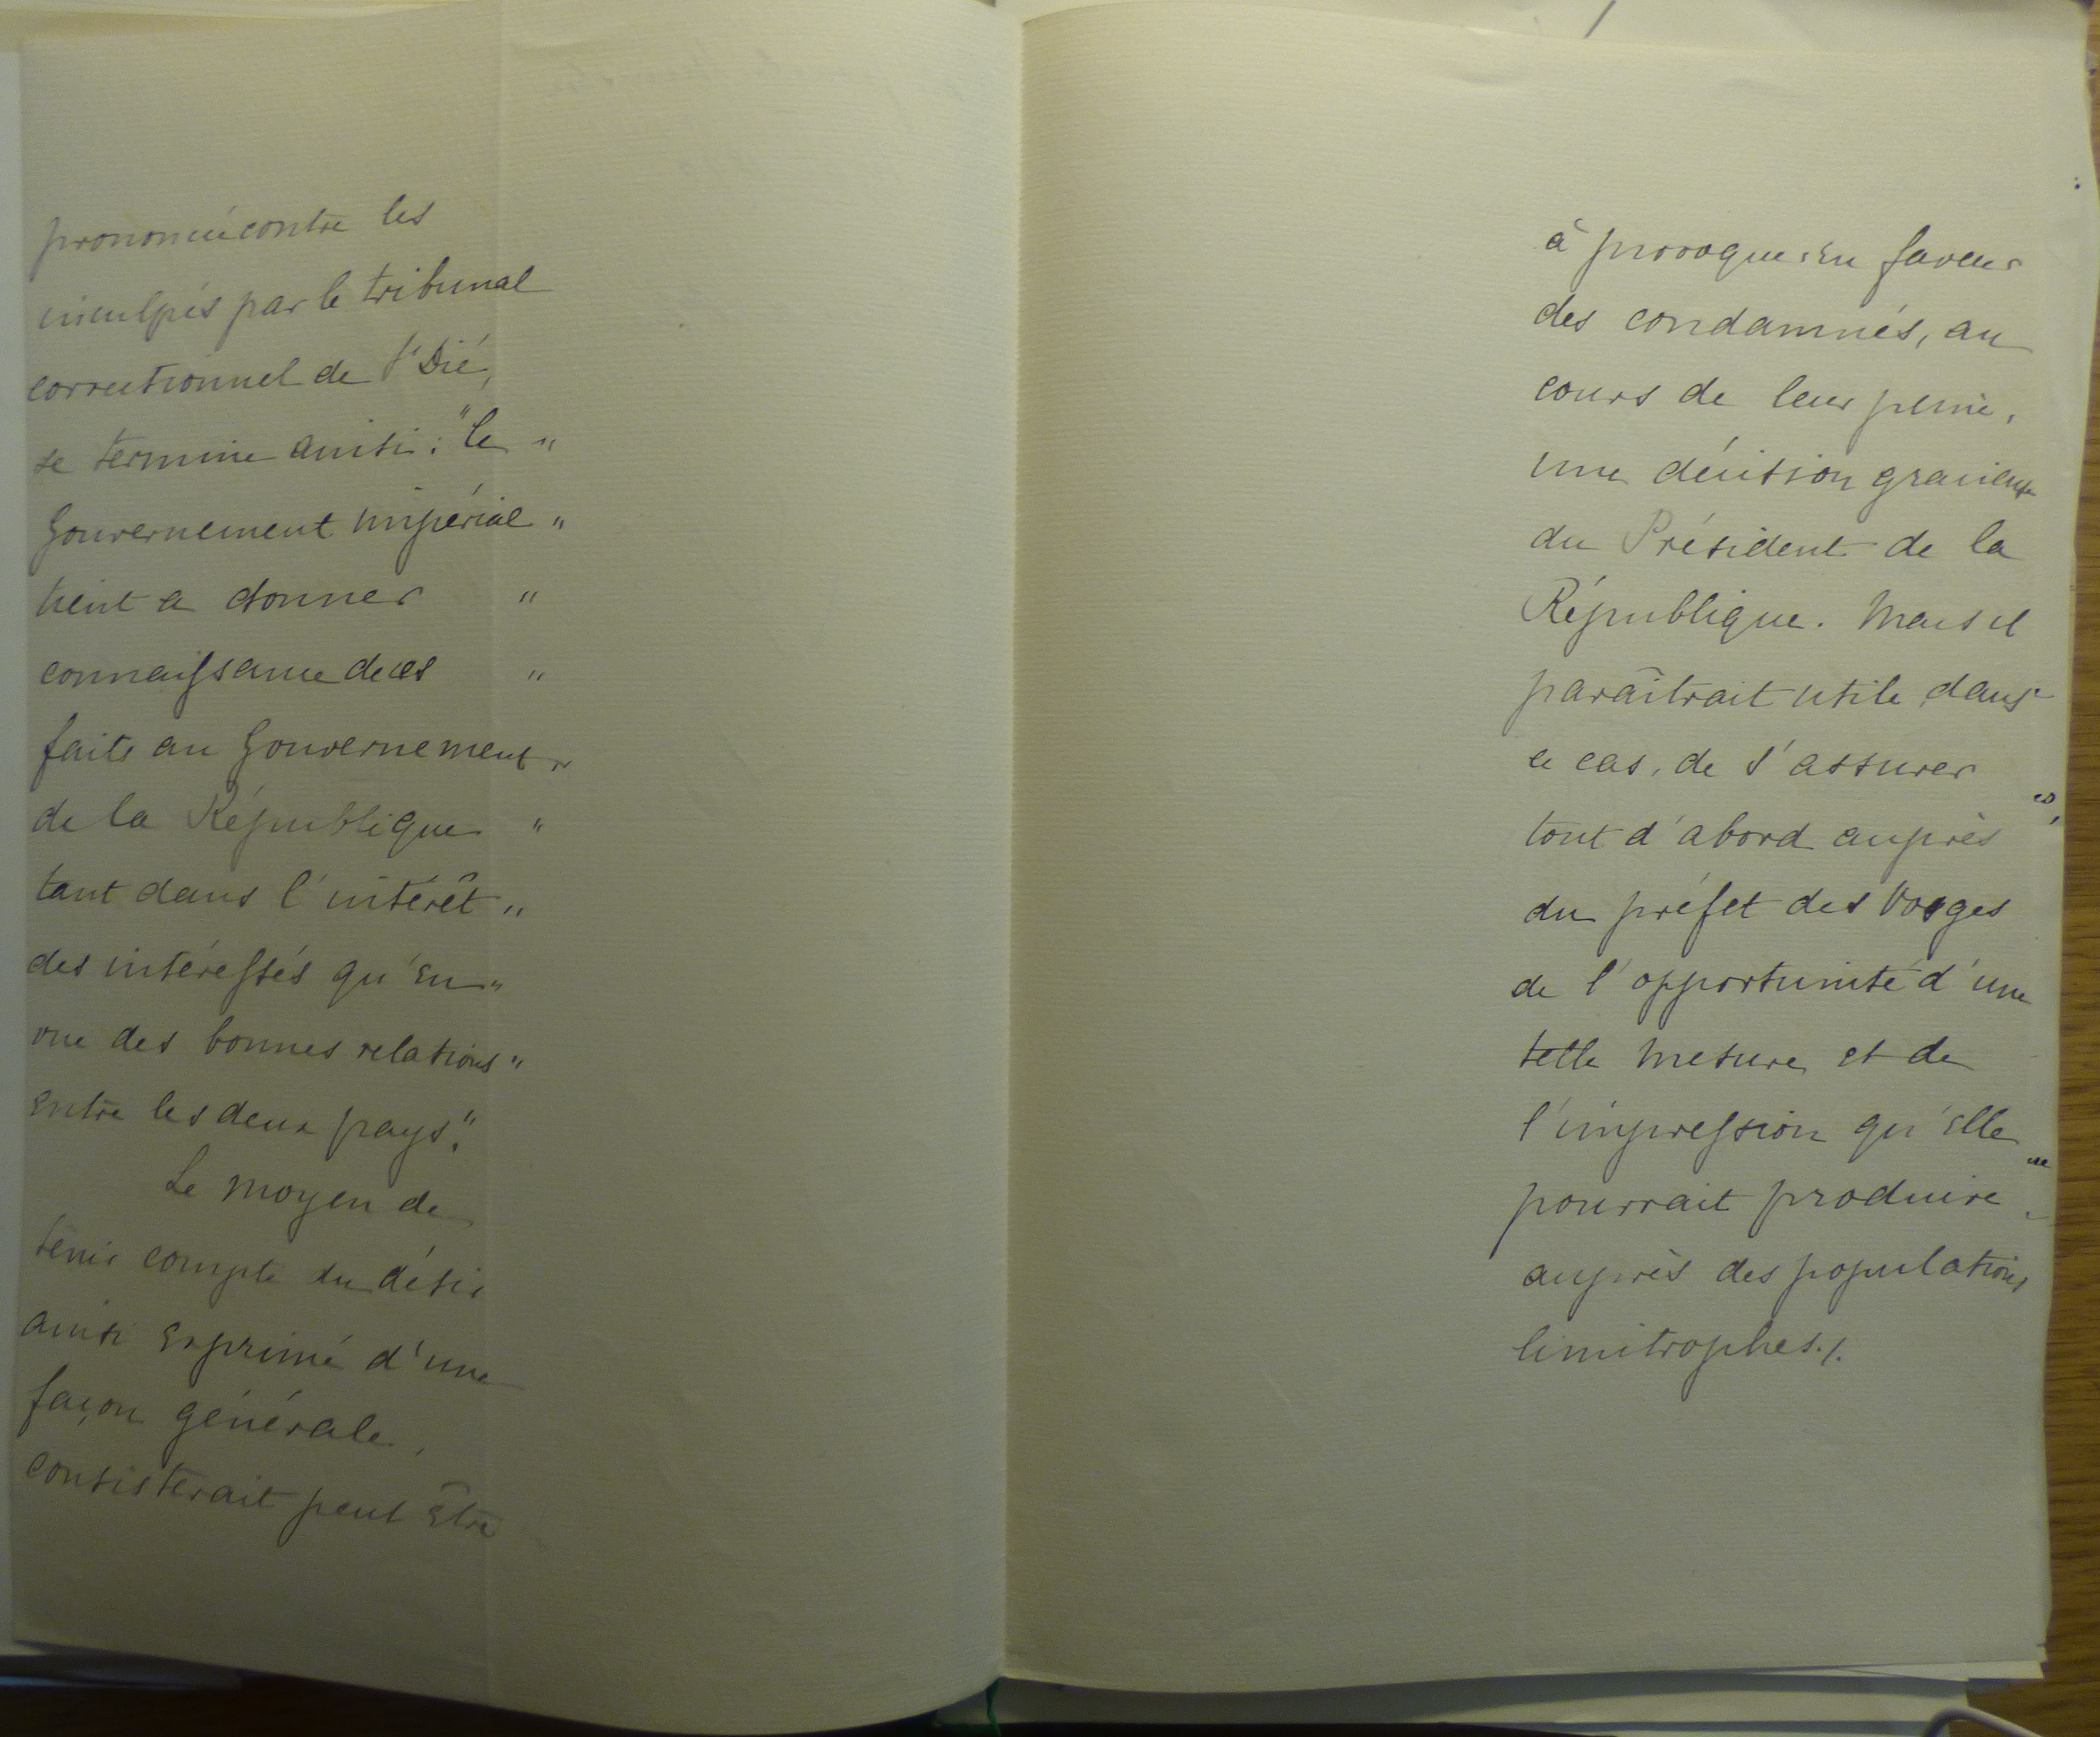 prononcée contre les
inculpés par le tribunal
correctionnel de St Dié,
se termine ainsi : "le "
Gouvernement impérial "
tient a donner "
connaissance de ces "
faits au Gouvernement "
de la République "
tant dans l'intérêt "
des intéressés qu'en "
vue des bonnes relations "
entre les deux pays".
Le moyen de
tenir compte du désir
ainsi exprimé d'une
façon générale,
consisterait peut être
à provoquer en faveur
des condamnés, au
cours de leur peine,
une décision gracieuse
du Président de la
République. Mais il
paraîtrait utile, dans
ce cas, de s'assurer
tout d'abord auprès
du préfet des Vosges
de l'opportunité d'une
telle mesure et de
l'impression qu'elle
pourrait produire
auprès des populations
limitrophes./.